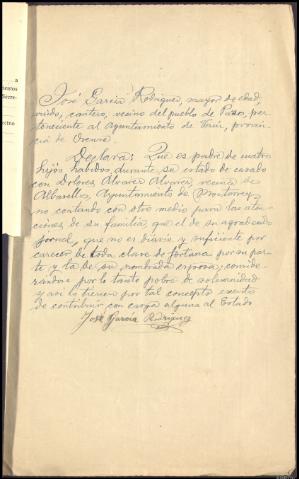 a
José García Rodríguez, mayor de edad,
casado, cantero, vecino del pueblo de Pazos, per-
teneciente al Ayuntamiento de Verín, provin-
cia de Orense.
Declara: Que es padre de cuatro
hijos habidos, durante su estado de casado
con Dolores Alvarez Alvarez, vecina de
Albarellos, Ayuntamiento de Monterrey,
no contando con otro medio para las aten-
ciones de su familia, que el de su
jornal, que no es diario y suficiente por
carecer de toda clase de fortuna por su par-
te y la de su nombrada esposa; conside-
randose por lo tanto pobre de solemnidad
y asi lo tienen por tal concepto exento
de contribuir con carga alguna al Estado
José García Rodríguez